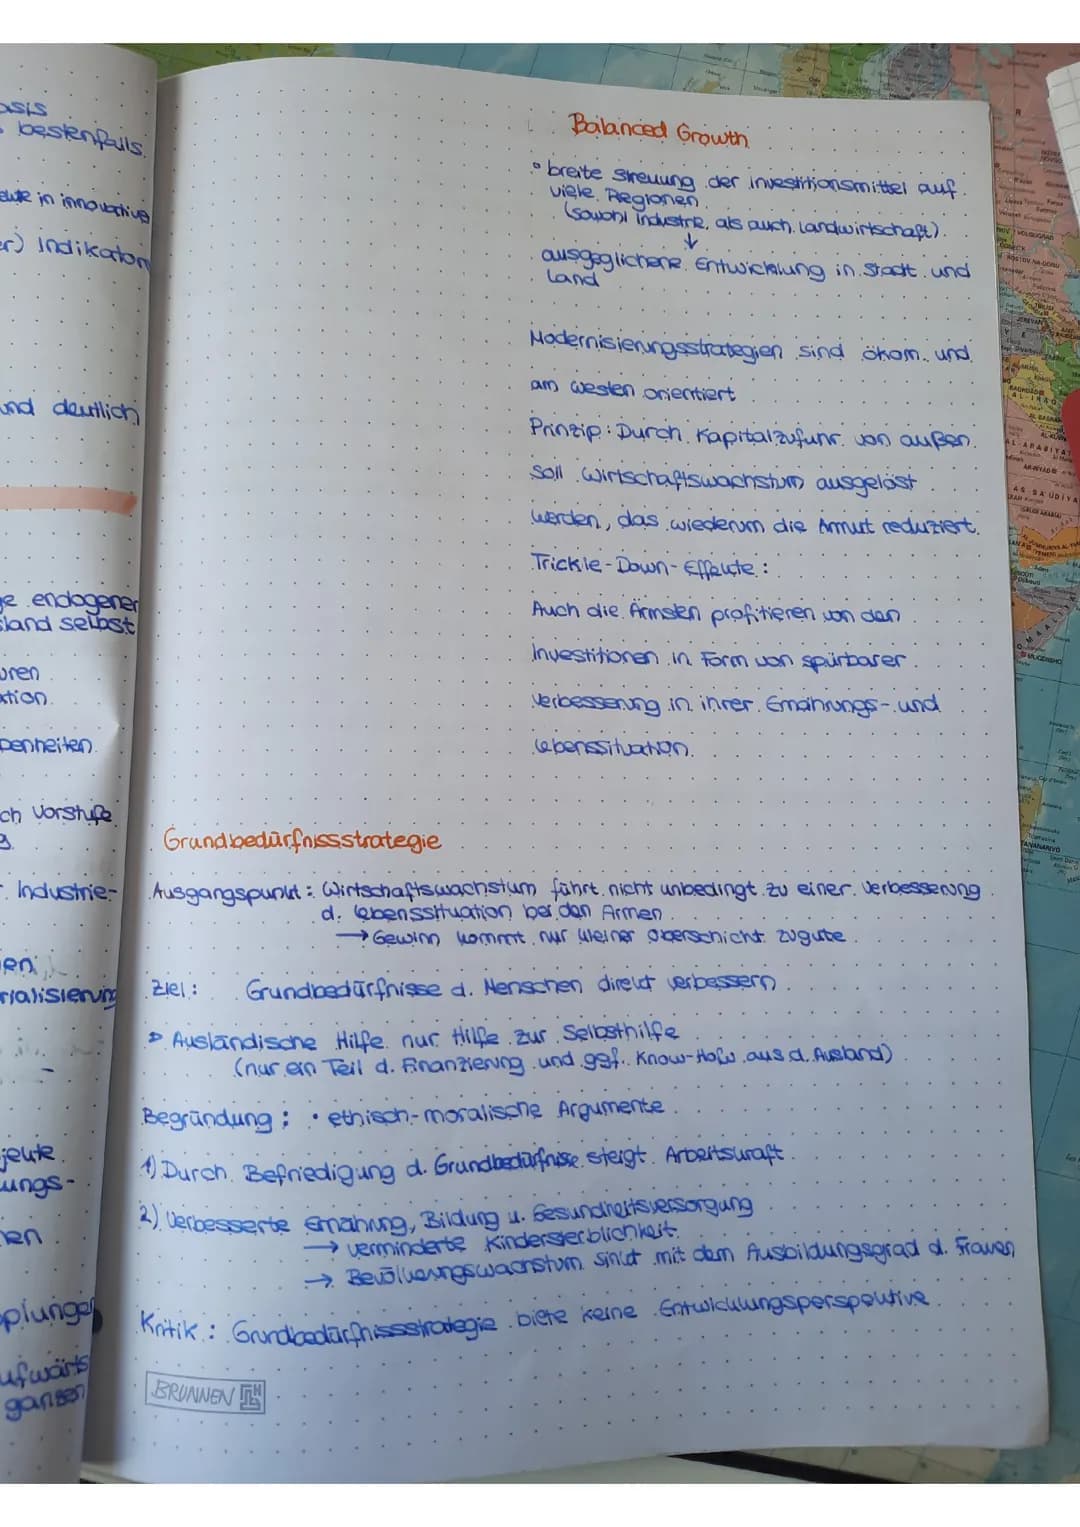 bestenfalls.
in innovative
Indikator
und deutlich
endogener
land selbst
ch Vorstufe
Industrie-
jeute
ungs-
ufwärts
ganzen
Balanced Growth
° breite Streuung der Investitionsmittel auf
viele Regionen
(sowohl Industrie, als auch Landwirtschaft)
↓
ausgeglichene Entwicklung in Stadt und
Land
Modernisierungsstrategien sind ökom. und
am Westen orientiert
Prinzip: Durch Kapitalzufuhr von außen
soll Wirtschaftswachstum ausgelöst
werden, das wiederum die Armut reduziert.
Trickle-Down-Effekte:
Auch die Ärmsten profitieren von den
Investitionen in Form von spürbarer
Verbesserung in ihrer Ernährungs- und
Lebenssituation.
Grundbedürfnissstrategie
Ausgangspunkt: Wirtschaftswachstum führt nicht unbedingt zu einer Verbesserung
d. Lebenssituation bei den Armen
→ Gewinn kommt nur kleiner Oberschicht zugute
Ziel: Grundbedürfnisse d. Menschen direkt verbessern
▷ Ausländische Hilfe nur Hilfe zur Selbsthilfe
(nur ein Teil d. Finanzierung und ggf. Know-How aus d. Ausland)
Begründung: • ethisch-moralische Argumente
1) Durch Befriedigung d. Grundbedürfnise steigt Arbeitskraft
2) Verbesserte Ernährung, Bildung u. Gesundheitsversorgung
→ verminderte Kindersterblichkeit
→ Bevölkerungswachstum sinkt mit dem Ausbildungsgrad d. Frauen
Kritik: Grundbedürfnissstrategie biete keine Entwicklungsperspektive
BRUNNEN